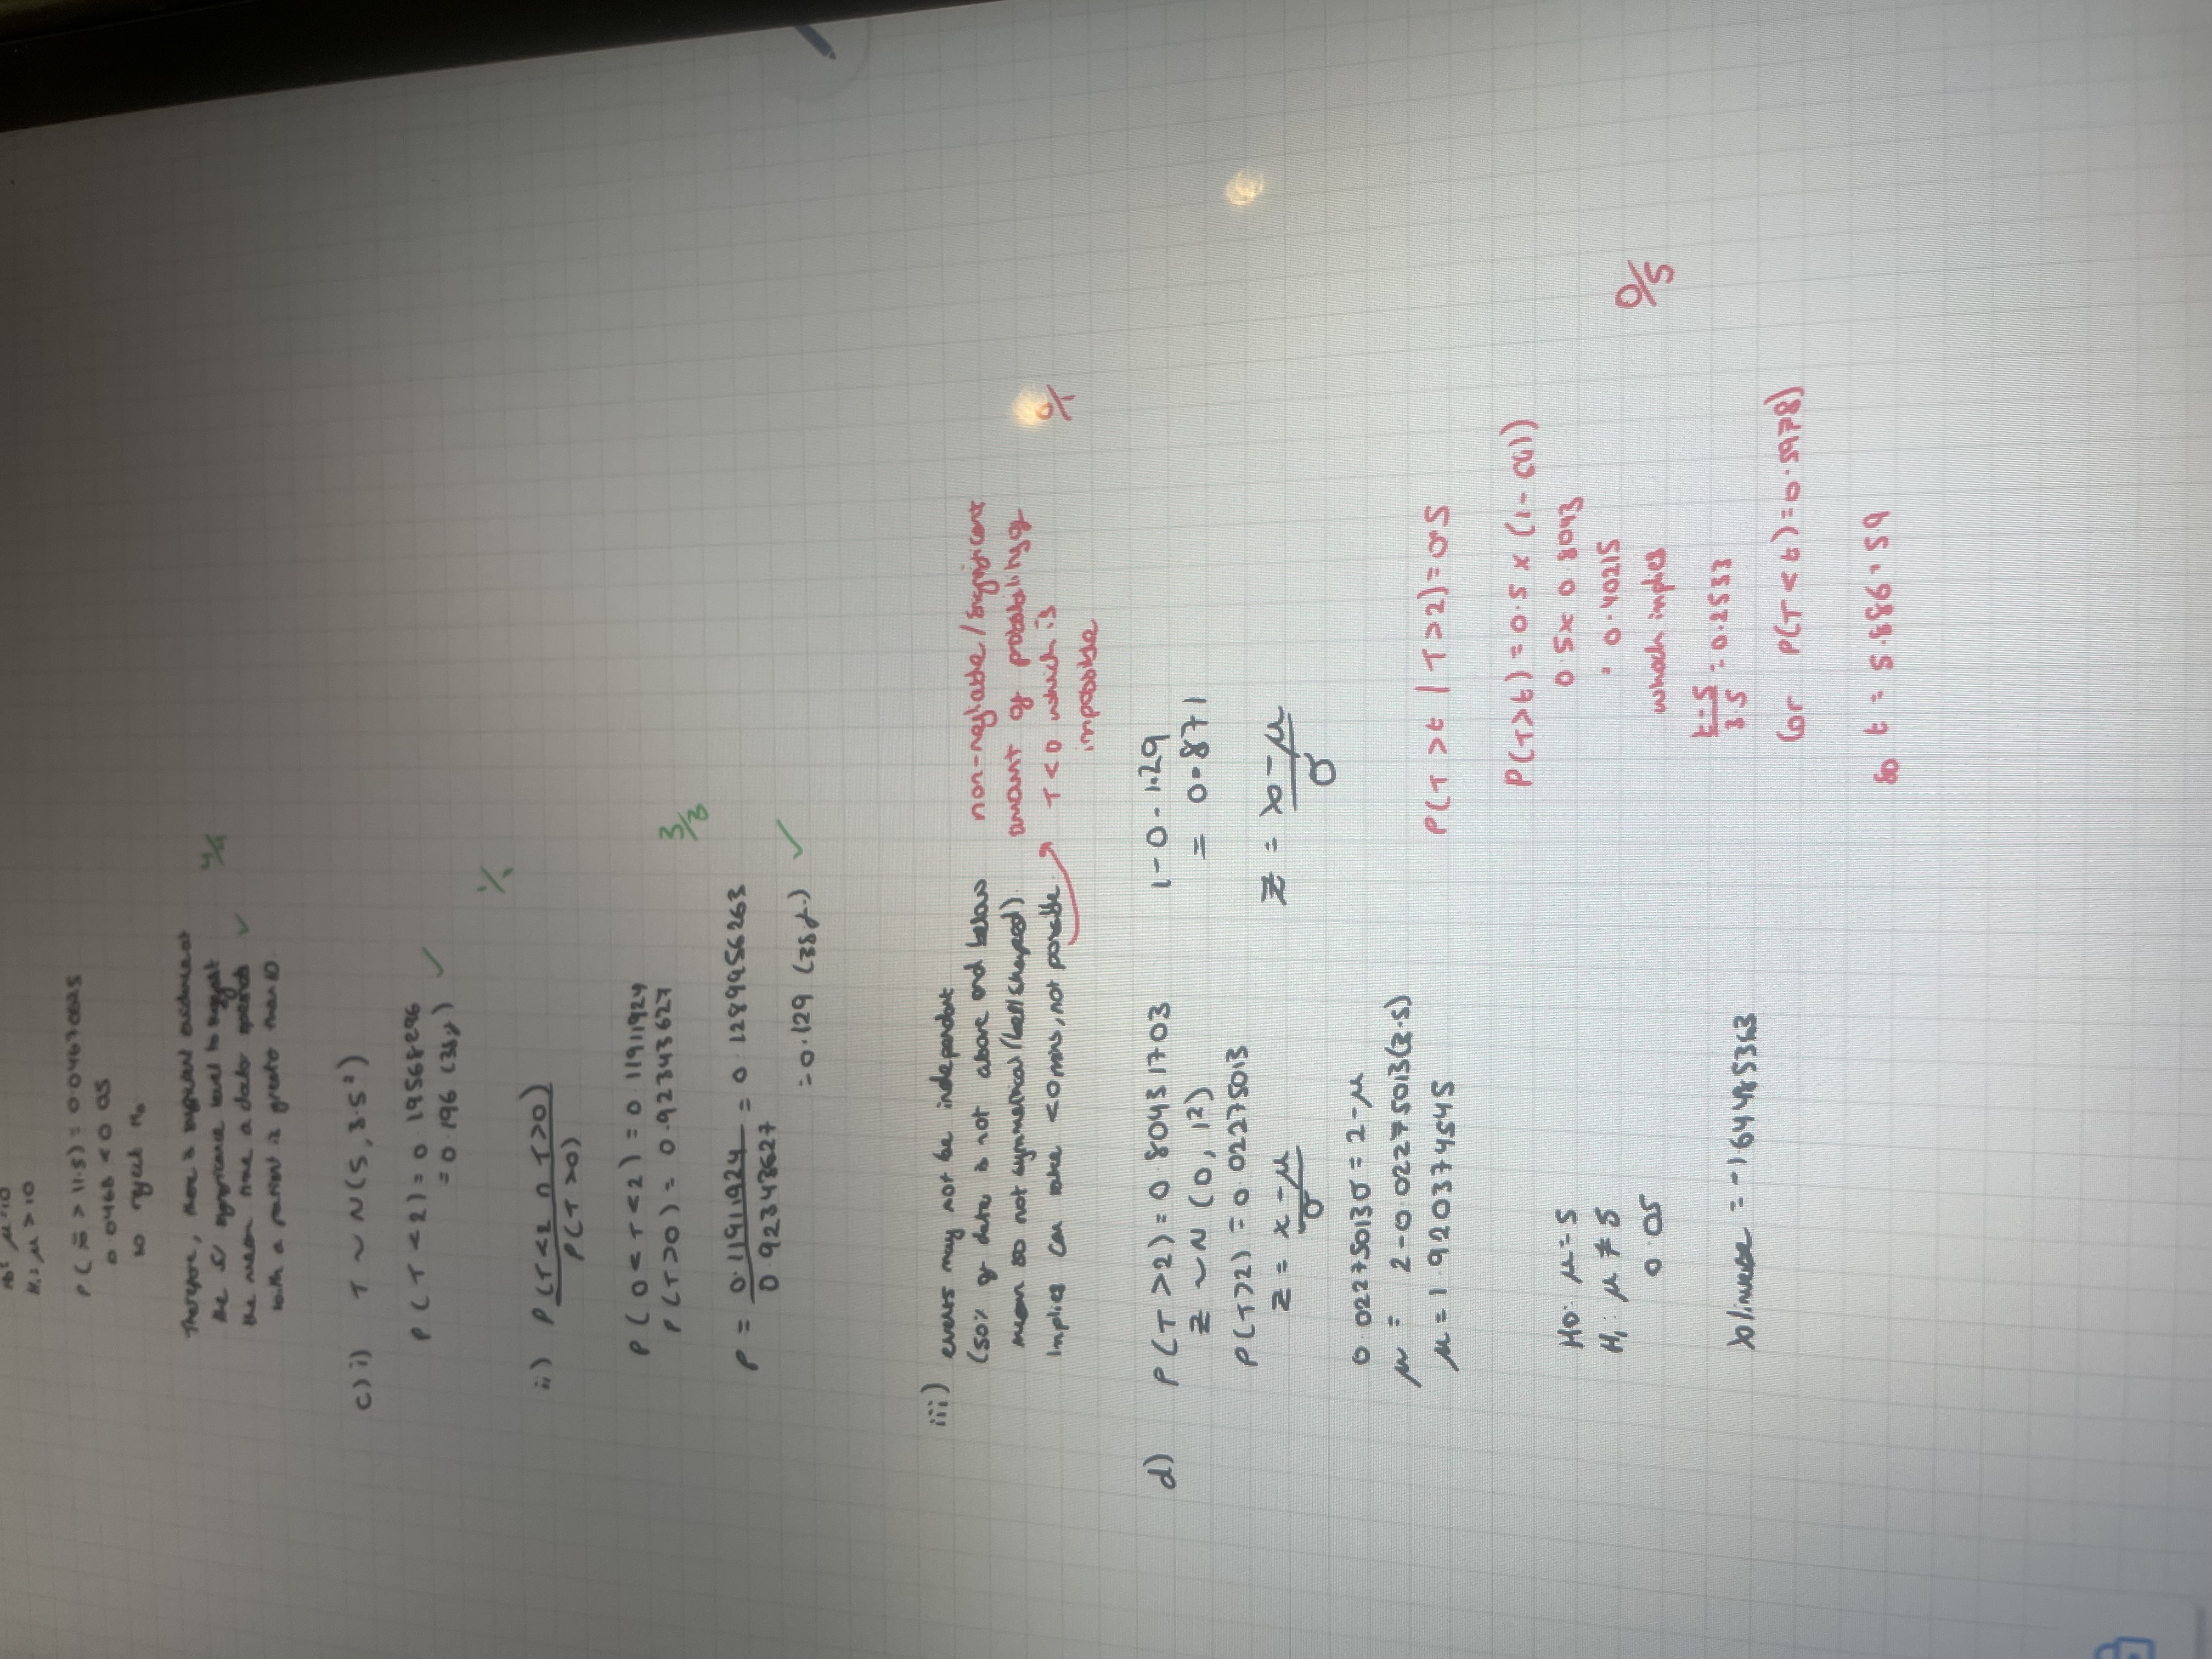 H₁: μ > 10
P( x̄ > 11.5) = 0.046766025
0.0468 < 0.05
so reject H₀
Therefore, there is sufficient evidence at
the 5% significance level to suggest
the mean time a doctor spends ✓
with a patient is greater than 10.
4/4
c) i) T ~ N (5, 3.5²)
P ( T < 2 ) = 0.19568296
= 0.196 (3sf) ✓
1/1
ii) P ( T < 2 ∩ T > 0 )
P ( T > 0 )
P ( 0 < T < 2 ) = 0.11911924
P ( T > 0 ) = 0.92343627
3/3
P = 0.11911924 = 0.1289956263
0.92343627
= 0.129 (3sf.) ✓
iii) events may not be independent
(50% of data is not above and below
mean so not symmetrical / bell shaped).
Implies can take < 0 mins, not possible.
non-neglable / significant
amount of probability of
T < 0 which is
impossible
0/1
d) P ( T > 2 ) = 0.80431703
Z ~ N (0, 1²)
P ( T > 2 ) = 0.02275013
Z = x - μ
σ
1 - 0.129
= 0.871
Z = x - μ
σ
0.02275013σ = 2 - μ
μ = 2 - 0.02275013(3.5)
μ = 1.920374545
P ( T > t | T > 2 ) = 0.5
P ( T > t ) = 0.5 x (1 - c(i))
0.5 x 0.8043
= 0.40215
which implies
t - 5 = 0.2533
3.5
(or P(T < t) = 0.5978)
so t = 5.886 = 5.9
0/5
H0: μ = 5
H₁: μ ≠ 5
0.05
x/inverse = -1.64485363